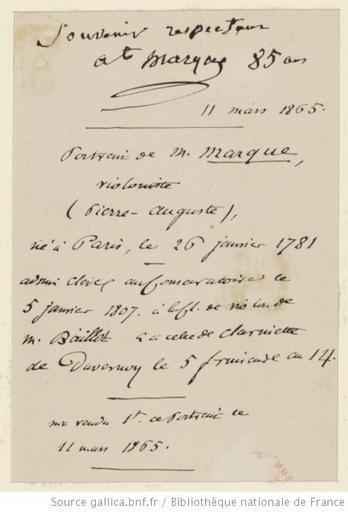 Souvenir respectueux
Ate Marque 85 ans
11 mars 1865.
Portrait de M. Marque,
violoniste
(Pierre-Auguste),
né à Paris, le 26 janvier 1781
admis élève au Conservatoire le
5 janvier 1807. à la cl. de violon de
M. Baillot & à celle de clarinette
de Duvernoy le 5 frimaire an 14.
ce Portrait le
11 mars 1865.
Source gallica.bnf.fr / Bibliothèque nationale de France